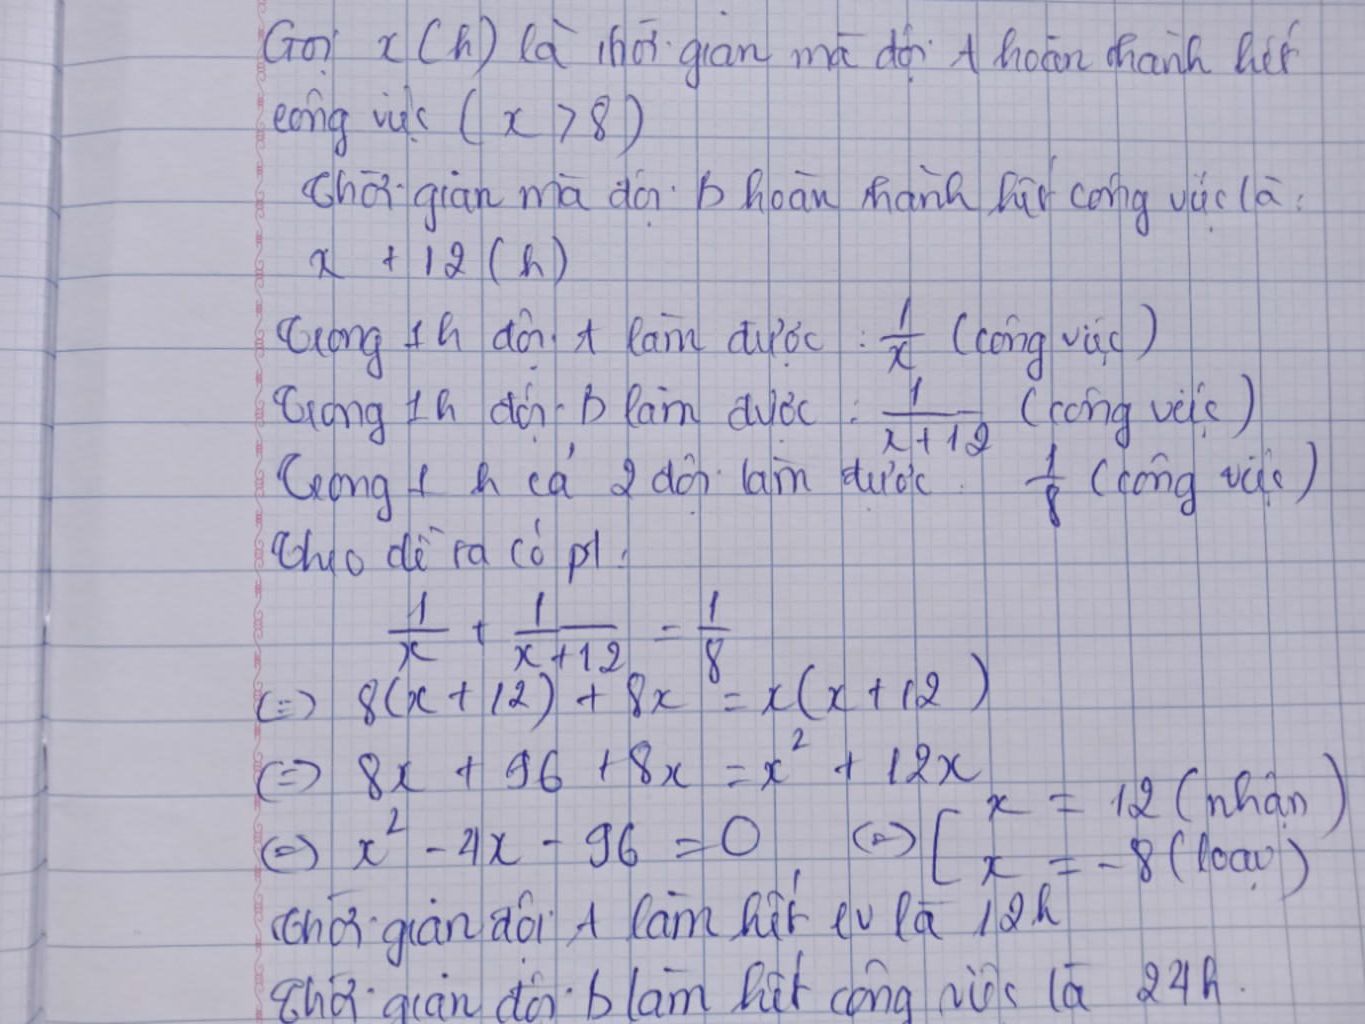 Gọi x (h) là thời gian mà đội A hoàn thành hết
công việc ( x > 8 )
Thời gian mà đội B hoàn thành hết công việc là :
x + 12 (h)
Trong 1h đội A làm được : 1/x (công việc)
Trong 1h đội B làm được : 1/(x+12) (công việc)
Trong 1 h cả 2 đội làm được 1/8 (công việc)
Theo đề ra có pt :
1/x + 1/(x+12) = 1/8
(=) 8(x + 12) + 8x = x(x + 12)
(=) 8x + 96 + 8x = x² + 12x
(=) x² - 4x - 96 = 0 (=) [ x = 12 (nhận)
x = -8 (loại)
Thời gian đội A làm hết cv là 12h
Thời gian đội B làm hết công việc là 24h.